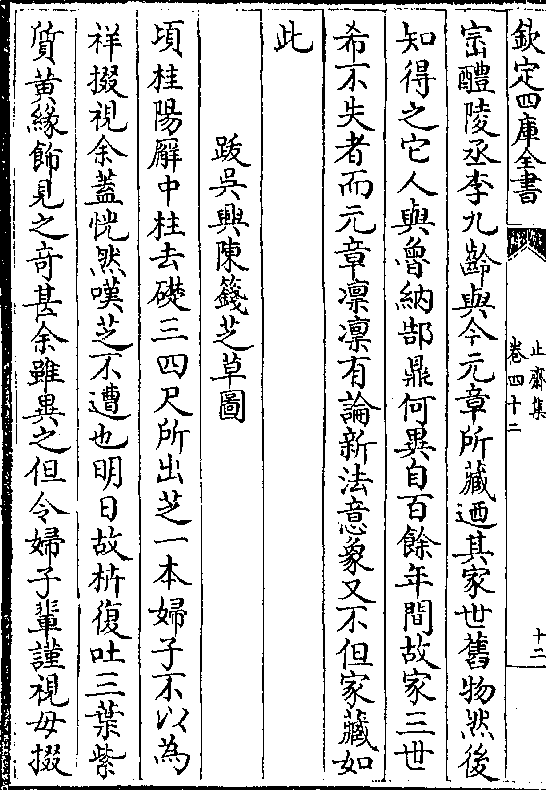 欽定四庫全書
止齋集
卷四十二
十二
宻醴陵丞李九齡與今元章所藏廼其家世舊物然後
知得之它人與魯納郜鼎何異自百餘年間故家三世
希不失者而元章凛凛有論新法意象又不但家藏如
此
跋吳興陳籛芝草圖
頃桂陽廨中柱去礎三四尺所出芝一本婦子不以為
祥掇視余蓋恍然嘆芝不遭也明日故枿復吐三葉紫
質黄緣飾見之竒甚余雖異之但令婦子輩謹視毋掇